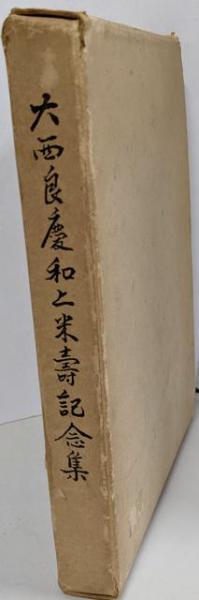 大西良慶和上米壽記念集